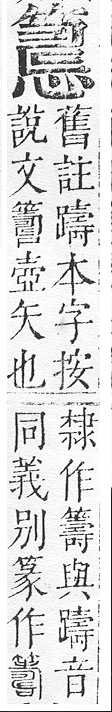 舊註躊本字按
說文壺矢也
隸作籌與躊音
同義別篆作